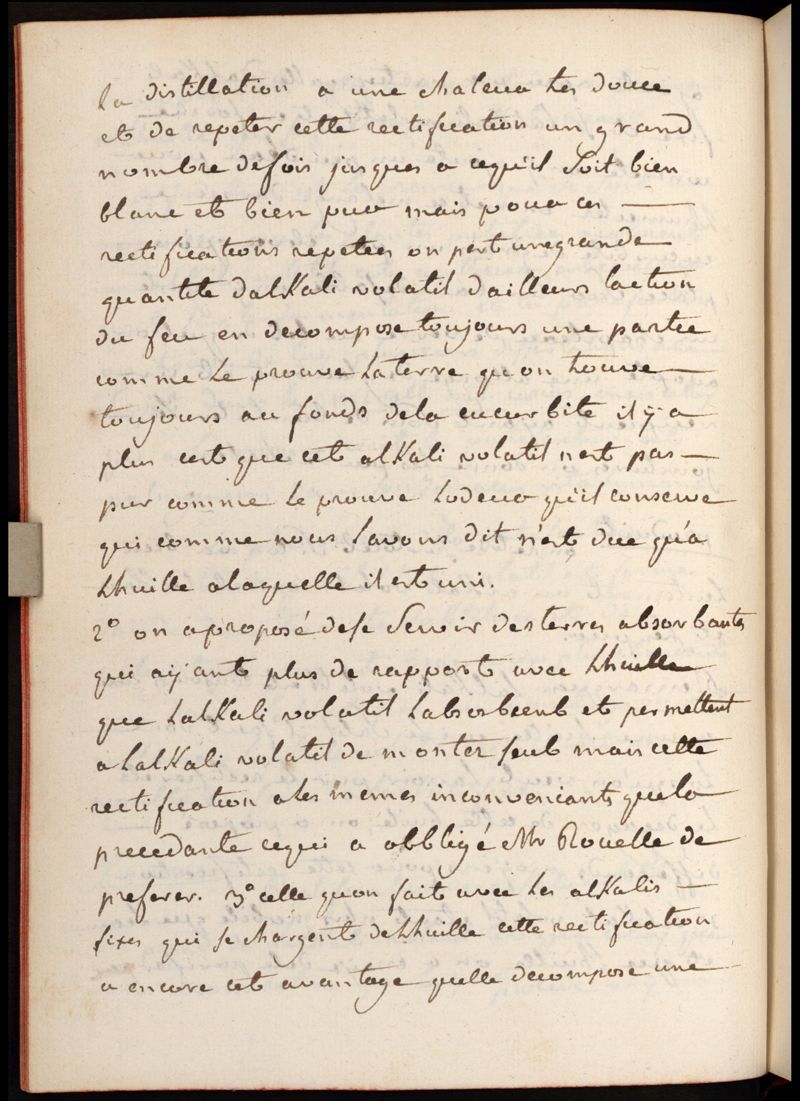 la distillation a une chaleur tres douce
et de repeter cette rectification un grand
nombre defois jusques a cequ'il soit bien
blanc et bien pur mais pour ces
rectifications repetées on pert unegrande
quantite dalKali volatil dailleurs laction
du feu en decompose toujours une partie
comme le prouve laterre qu'on trouve
toujours au fonds dela cucurbite il y a
plus cest que cet alKali volatil nest pas
pur comme le prouve lodeur qu'il conserve
qui comme nous lavons dit n'est due qu'a
lhuille alaquelle il est uni.
2° on a proposé dese servir desterres absorbantes
qui aijant plus de rapport avec lhuille
que lalKali volatil labsorbent et permettent
a lalKali volatil de monter seul mais cette
rectification a les memes inconveniants quela
precedante cequi a obbligé Mr Rouelle de
preferer. 3° celle qu'on fait avec les alKalis
fixes qui se chargent delhuille cette rectification
a encore cet avantage quelle decompose une